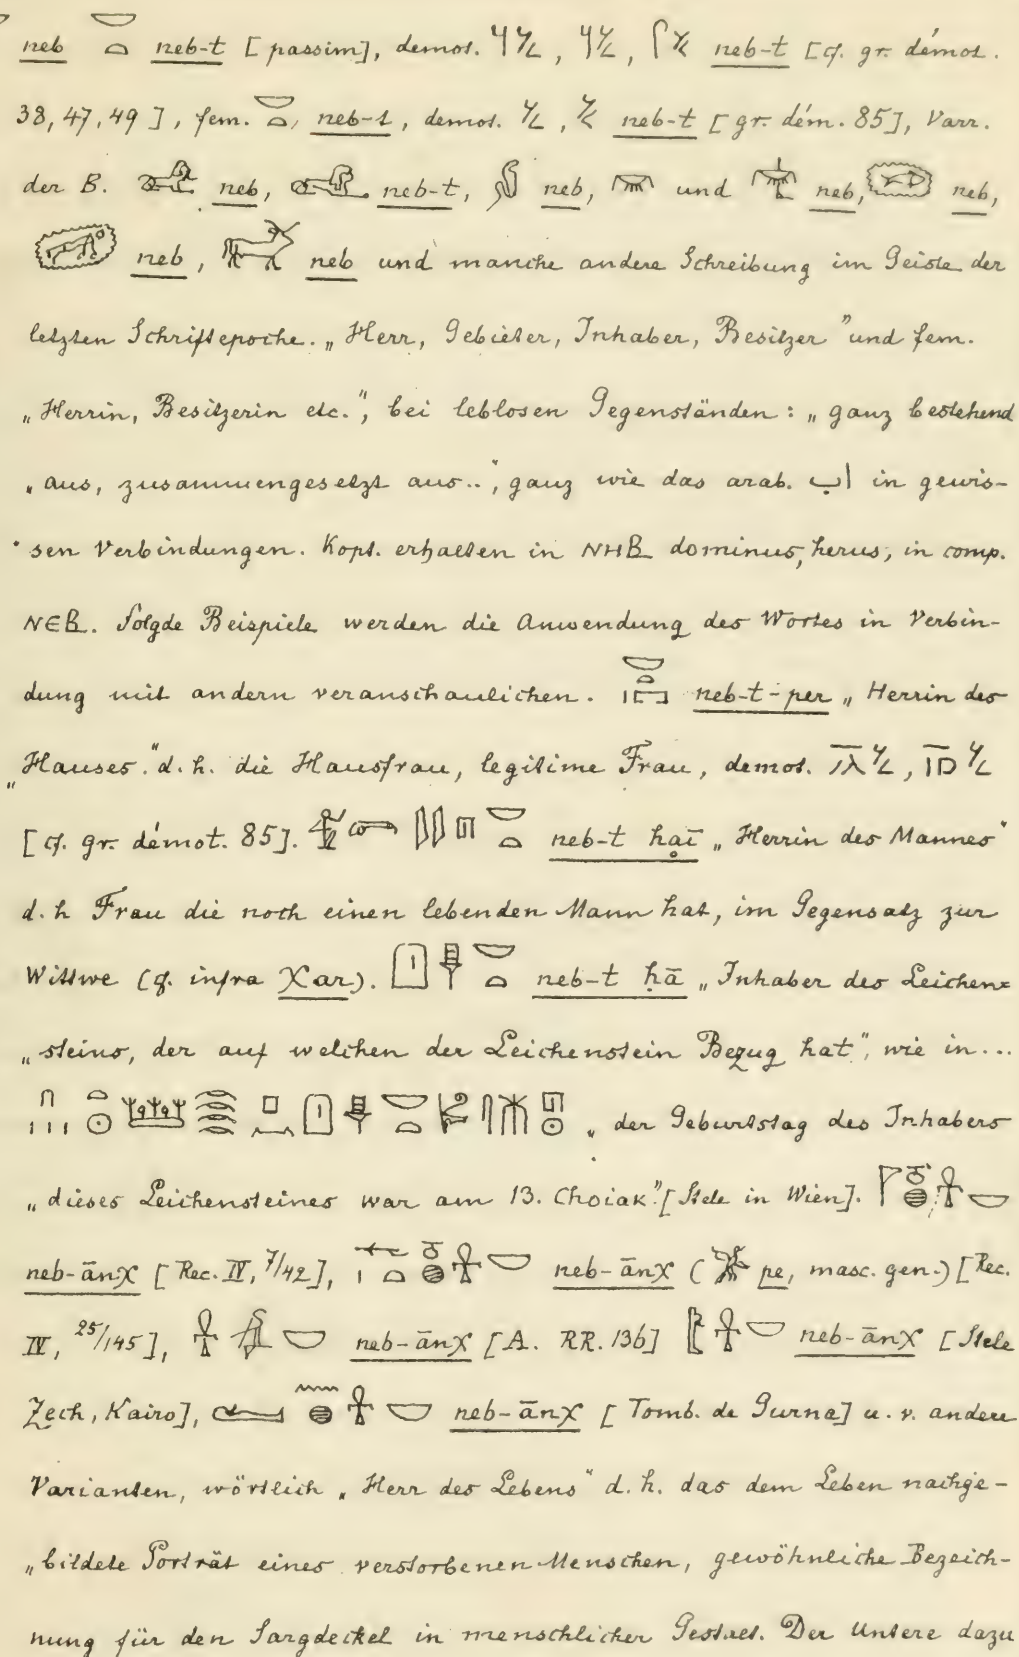 neb 𓎟𓏏 neb-t [passim], demot. neb-t [cf. gr. démot.
38, 47, 49], fem. 𓎟𓏏, neb-t, demot. neb-t [gr. dém. 85], Varr.
der B. neb, neb-t, neb, und neb, neb,
neb, neb und manche andere Schreibung im Geiste der
letzten Schriftepoche. „Herr, Gebieter, Inhaber, Besitzer" und fem.
„Herrin, Besitzerin etc.", bei leblosen Gegenständen: „ganz bestehend
„aus, zusammengesetzt aus..", ganz wie das arab. اب in gewis-
sen Verbindungen. Kopt. erhalten in ⲚⲎⲂ dominus, herus, in comp.
ⲚⲈⲂ. Folgde Beispiele werden die Anwendung des Wortes in Verbin-
dung mit andern veranschaulichen. 𓎟𓏏𓉐𓏤 neb-t-per „Herrin des
„Hauses." d. h. die Hausfrau, legitime Frau, demot.
[cf. gr. démot. 85]. neb-t haī „Herrin des Mannes"
d. h Frau die noch einen lebenden Mann hat, im Gegensatz zur
Wittwe (cf. infra χar). neb-t ḥā „Inhaber des Leichen=
„steins, der auf welchen der Leichenstein Bezug hat", wie in...
„der Geburtstag des Inhabers
„dieses Leichensteines war am 13. Choiak" [Stele in Wien].
neb-ānχ [Rec. IV, 7/42], neb-ānχ (pe, masc. gen.) [Rec.
IV, 25/145], neb-ānχ [A. RR. 136] neb-ānχ [Stele
Zech, Kairo], neb-ānχ [Tomb. de Gurna] u. v. andere
Varianten, wörtlich „Herr des Lebens" d. h. das dem Leben nachge-
„bildete Porträt eines verstorbenen Menschen, gewöhnliche Bezeich-
nung für den Sargdeckel in menschlicher Gestalt. Der Untere dazu